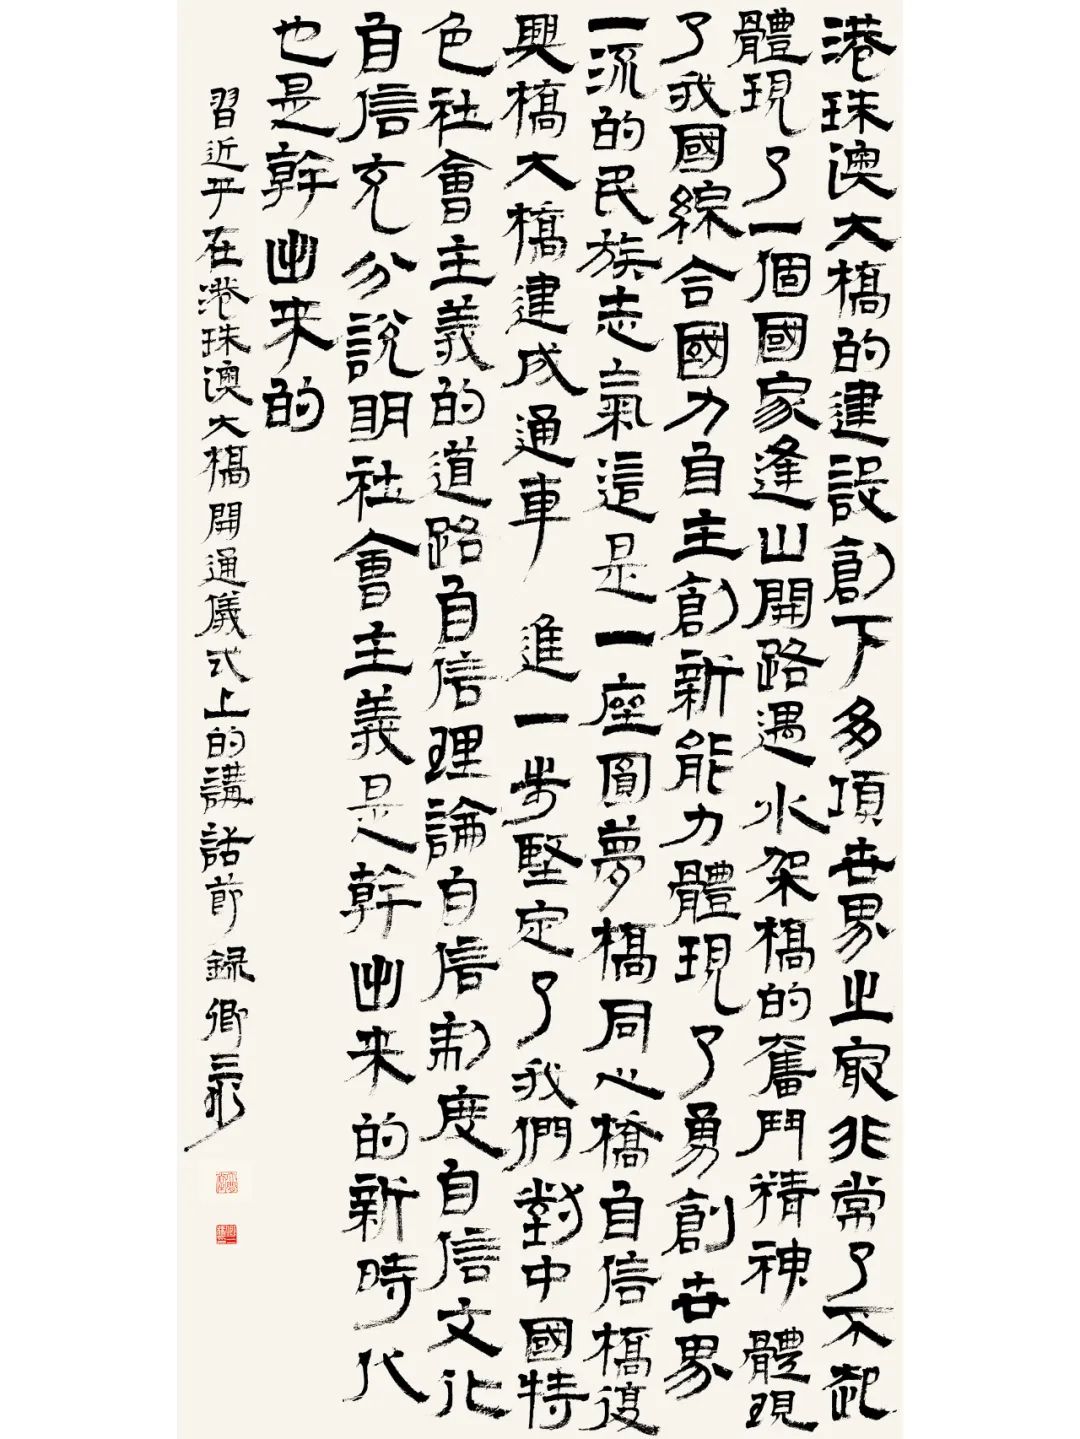 港珠澳大橋的建設創下多項世界之最非常了不起
體現了一個國家逢山開路遇水架橋的奮鬥精神體現
了我國綜合國力自主創新能力體現了勇創世界
一流的民族志氣這是一座圓夢橋同心橋自信橋復
興橋大橋建成通車進一步堅定了我們對中國特
色社會主義的道路自信理論自信制度自信文化
自信充分說明社會主義是幹出來的新時代
也是幹出來的
習近平在港珠澳大橋開通儀式上的講話節錄